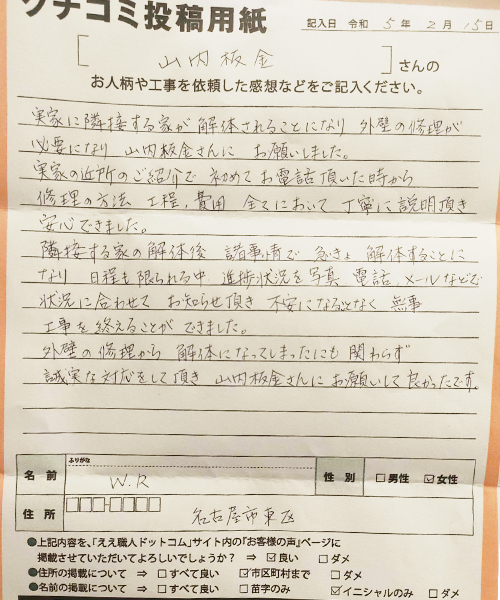 クチコミ投稿用紙
記入日 令和 5年 2月 15日
[山内板金]さんの
お人柄や工事を依頼した感想などをご記入ください。
実家に隣接する家が 解体されることになり 外壁の修理が
必要になり 山内板金さんに お願いしました。
実家の近所のご紹介で 初めてお電話頂いた時から
修理の方法、工程、費用 全てにおいて 丁寧に説明頂き
安心できました。
隣接する家の解体後 諸事情で 急きょ 解体することに
なり 日程も限られる中 進捗状況を写真、電話、メールなどで
状況に合わせて お知らせ頂き 不安になることなく 無事
工事を終えることが できました。
外壁の修理から 解体になってしまったにも 関わらず
誠実な対応をして頂き 山内板金さんに お願いして良かったです。
ふりがな
名前 W.R 性別 □男性 ☑女性
住所 □□□-□□□□ 名古屋市東区
●上記内容を、「ええ職人ドットコム」サイト内の「お客様の声」ページに
掲載させていただいてよろしいでしょうか? ⇒ ☑良い □ダメ
●住所の掲載について ⇒ □すべて良い ☑市区町村まで □ダメ
●名前の掲載について ⇒ □すべて良い □苗字のみ ☑イニシャルのみ □ダメ